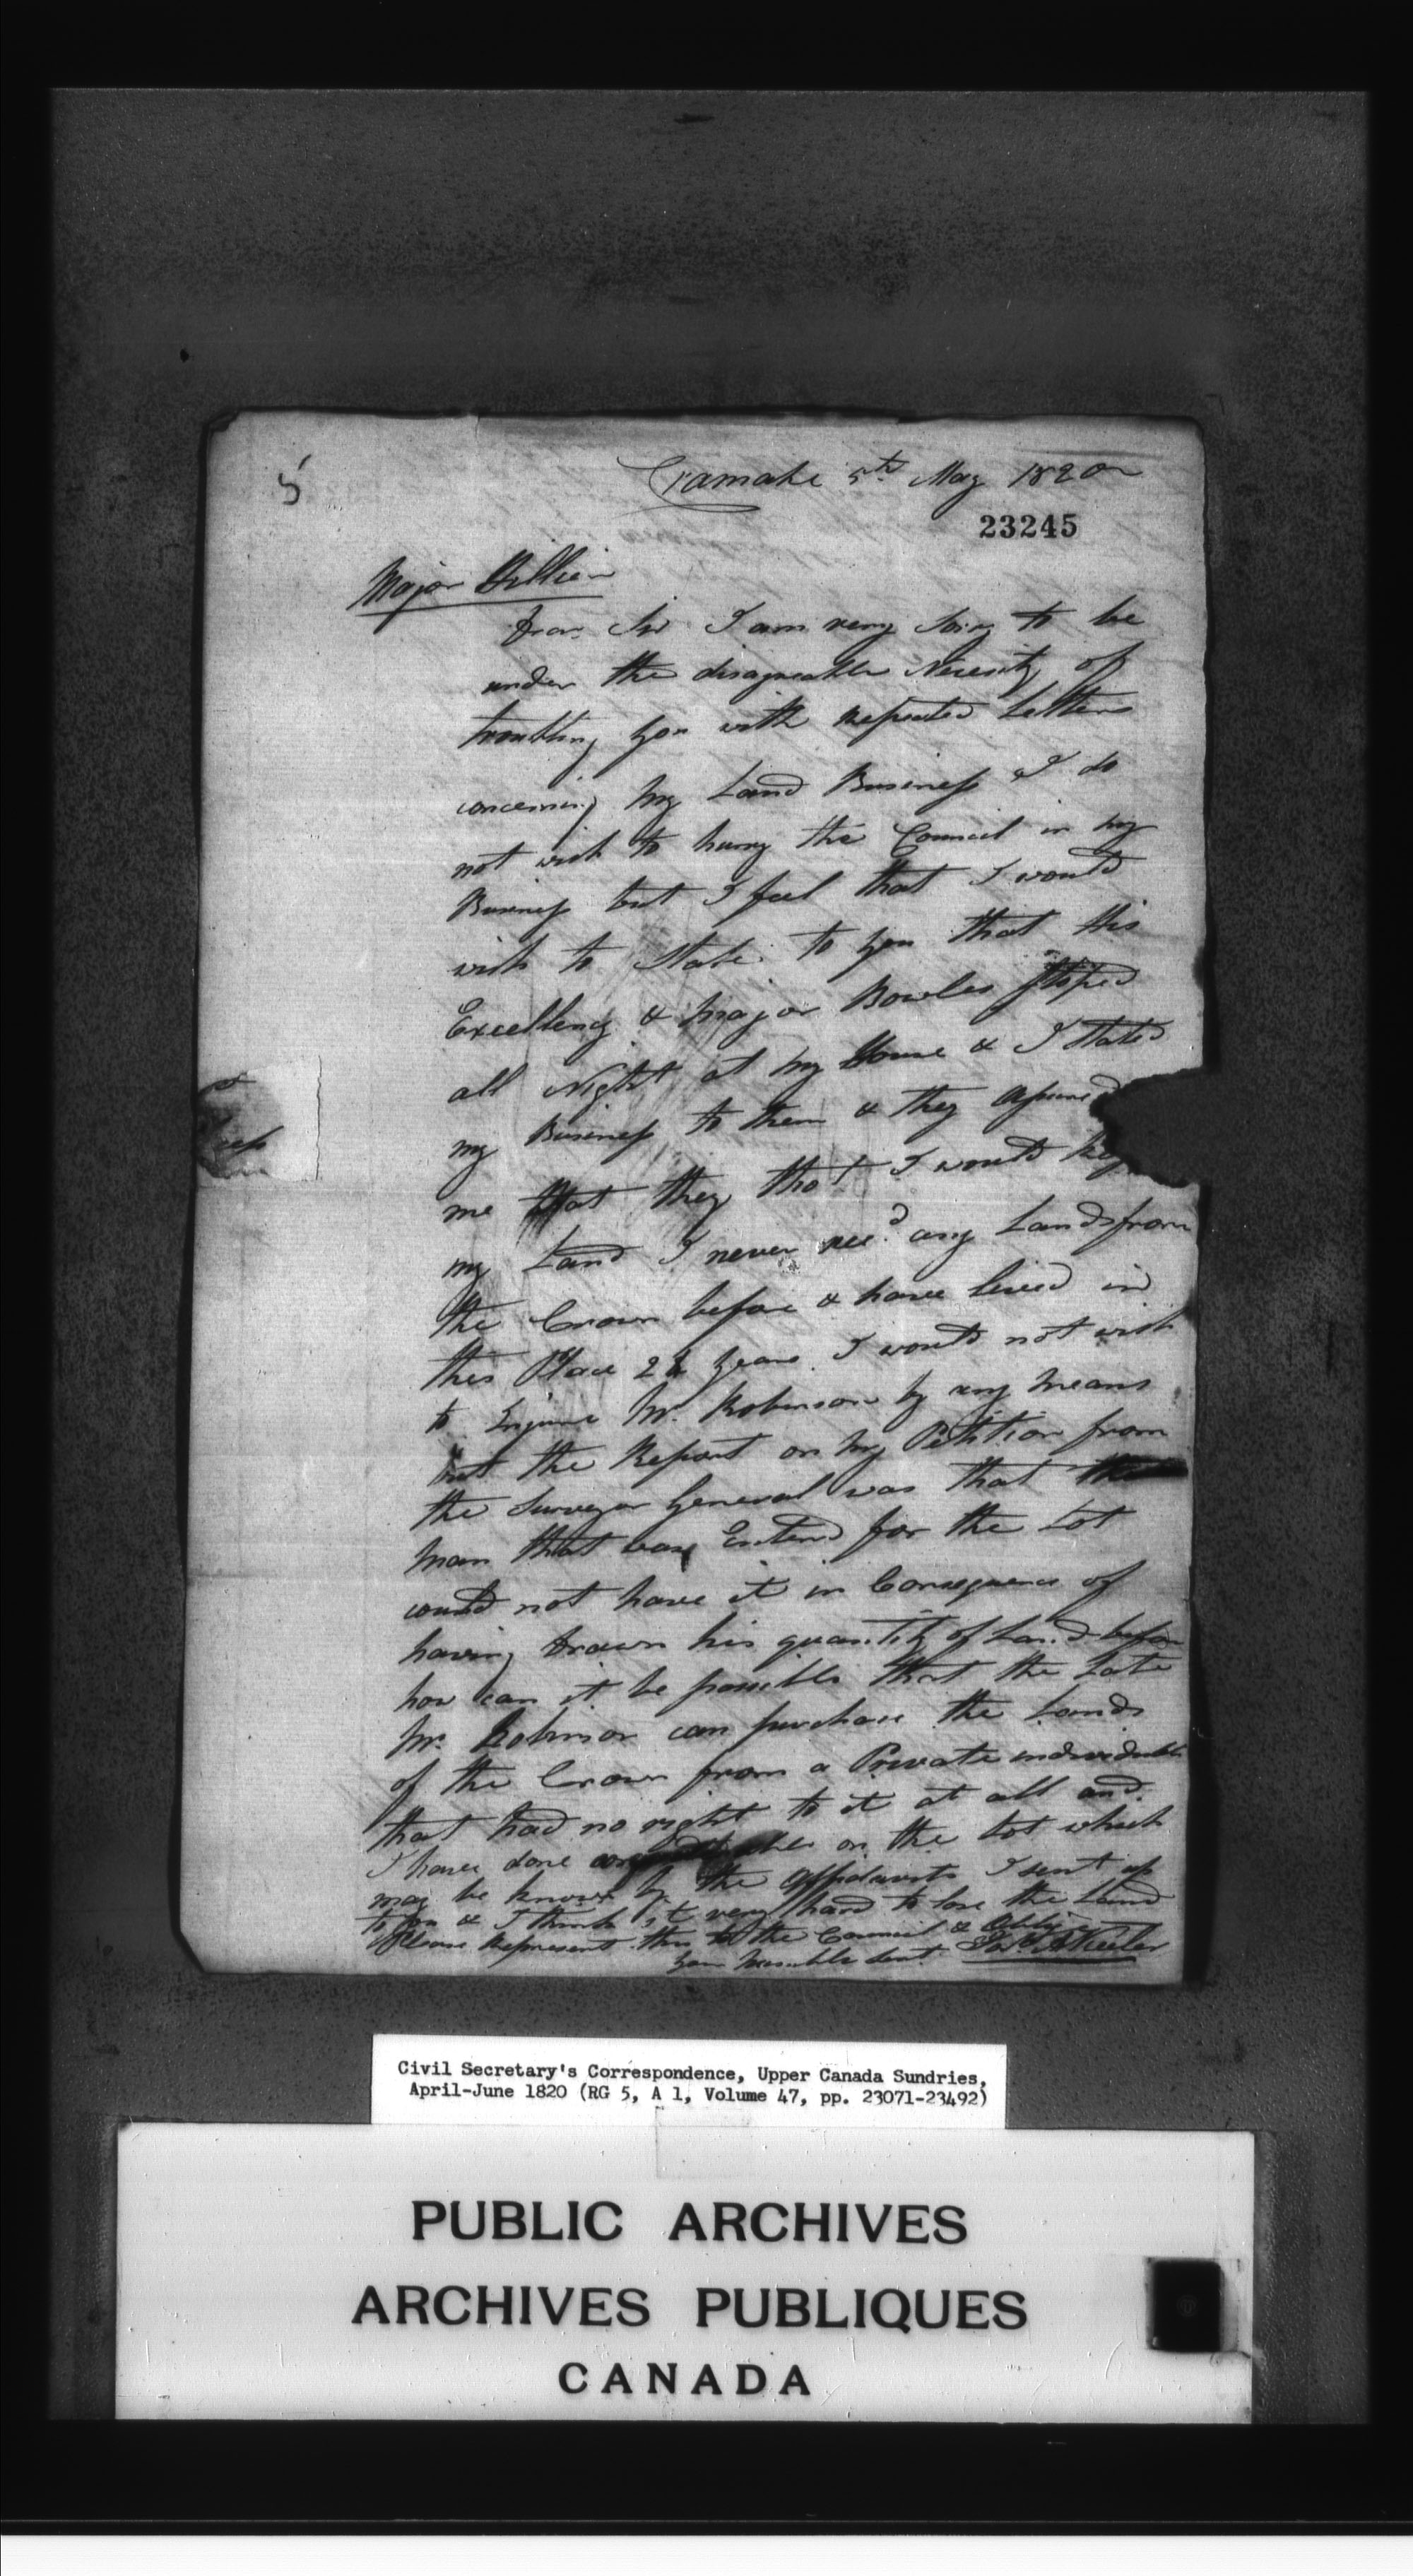 5
Cramahe 5th May 1820
23245
Major Hillier
Dear Sir I am very Sory to be
under the disagreable Nesesity of
troubling you with Repeated Letters
concerning my Land Business I do
not wish to hurry the Council in my
Business but I feel that I would
wish to State to you that His
Excellency & Major Bowles Stoped
all Night at my House & I Stated
my Business to them & they Assured
me that they thot I would
my Land I never recd any Lands from
the Crown before & have lived in
this Place 22 years I would not wish
to Injure Mr. Robinson by any means
but the Report on my Petition from
the Surveyor General was that the
man that was Enterd for the Lot
could not have it in Consequence of
having drawn his quantity of Land before
how can it be possible that the Late
Mr. Robinson can purchase the Lands
of the Crown from a Private individual
that had no right to it at all and
I have done on the Lot which
may be known by the Affidavits I sent up
to you & I think it very hard to lose the Land
Please Represent this to the Council & Oblige
your Humble Servt. Jos. A Keeler
Civil Secretary's Correspondence, Upper Canada Sundries,
April-June 1820 (RG 5, A 1, Volume 47, pp. 23071-23492)
PUBLIC ARCHIVES
ARCHIVES PUBLIQUES
CANADA